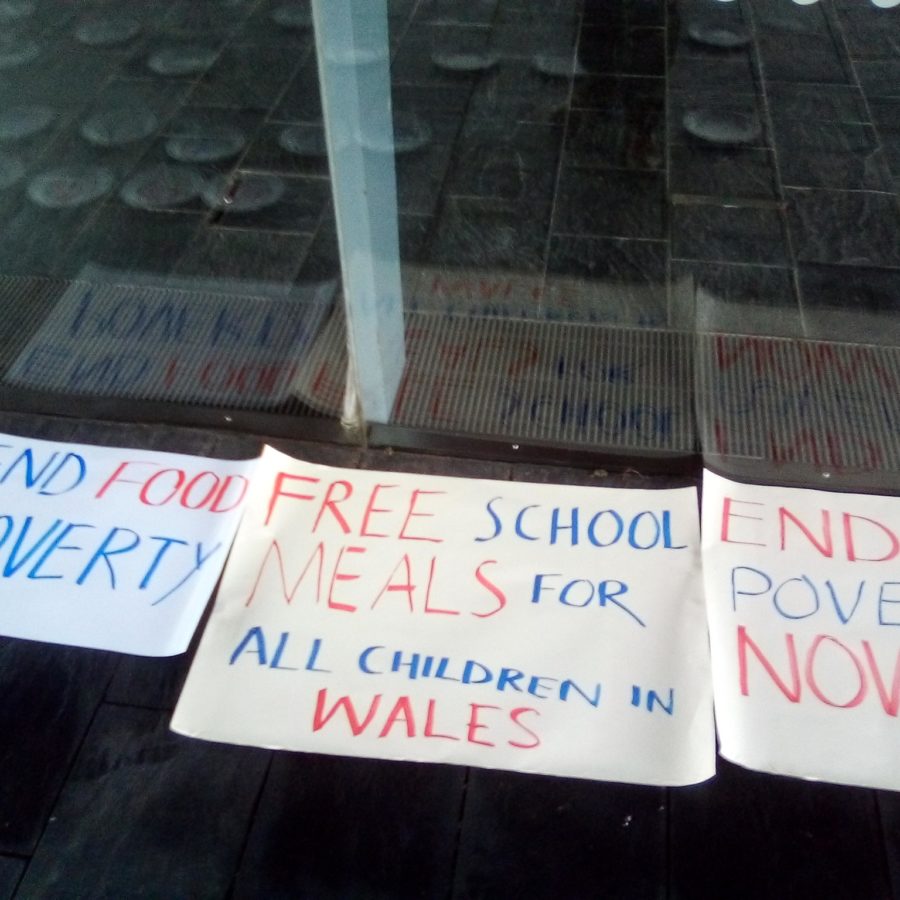 END FOOD
POVERTY
FREE SCHOOL
MEALS FOR
ALL CHILDREN IN
WALES
END
POVE
NOW